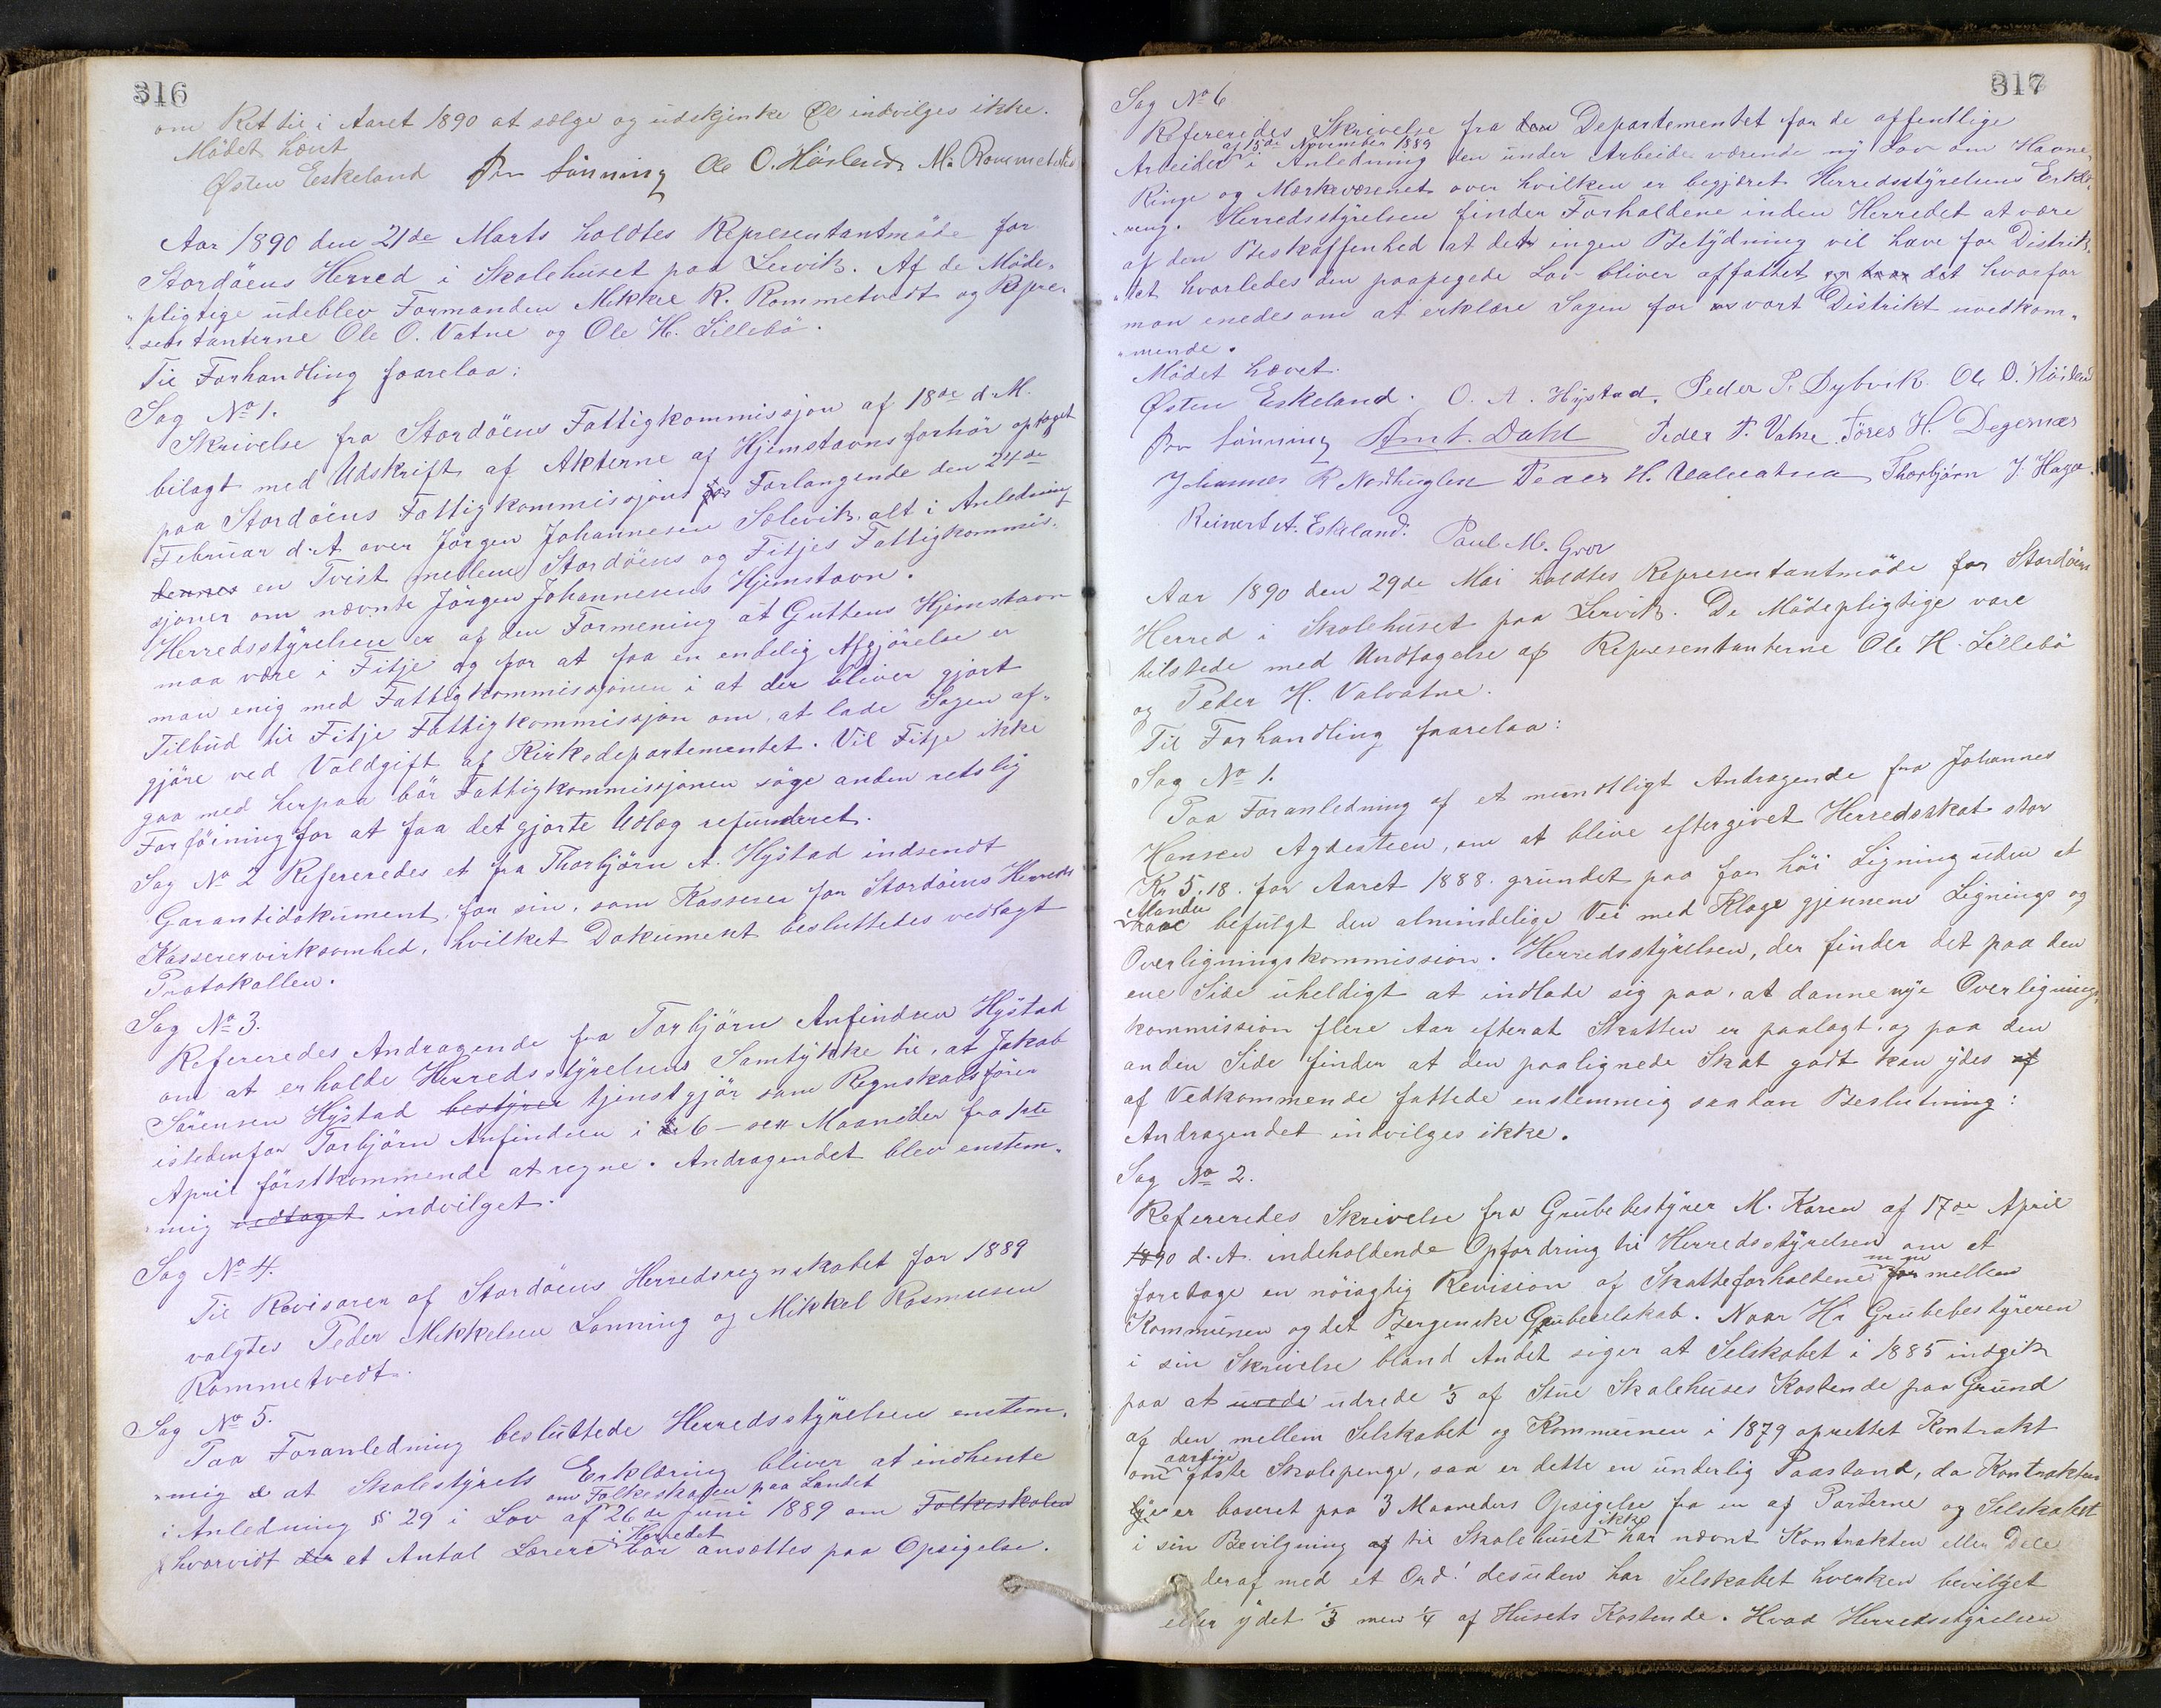 316
om Ret til i Aaret 1890 at sælge og udskjenke Øl indvilges ikke.
Mödet hævt
Østen Eskeland Per Lönning Ole O. Hösland M. Rommetvedt
Aar 1890 den 21de Marts holdtes Representantmöde for
Stordöens Herred i Skolehuset paa Lervik. Af de Möde-
"pligtige udeblev Formanden Mikkel R. Rommetvedt og Repre-
"sentanterne Ole O. Vatne og Ole H. Lillebö.
Til Forhandling forelaa:
Sag No 1.
Skrivelse fra Stordöens Fattigkommissjon af 18de d. M.
bilagt med Udskrift af Akterne af Hjemstavnsforhör optaget
paa Stordöens Fattigkommissjons Forlangende den 24de
Februar d. A. over Jörgen Johannesen Sælevik, alt i Anledning
dennes en Tvist mellem Stordöens og Fitjes Fattigkommis-
sjoner om nævnte Jörgen Johannesens Hjemstavn.
Herredsstyrelsen er af den Formening at Guttens Hjemstavn
maa være i Fitje og for at faa en endelig Afgjörelse er
man enig med Fattigkommissjonen i at der bliver gjort
Tilbud til Fitje Fattigkommissjon om, at lade Sagen af-
gjöre ved Voldgift af Kirkedepartementet. Vil Fitje ikke
gaa med herpaa bör Fattigkommissjonen söge anden retslig
Forföining for at faa det gjorte Udlæg refunderet.
Sag No 2 Refereredes et fra Thorbjörn A. Hystad indsendt
Garantidokument, for sin, som Kasserer for Stordöens Herreds
Kasserervirksomhed, hvilket Dokument besluttedes vedlagt
Protokollen.
Sag No 3.
Refereredes Andragende fra Torbjörn Anfindsen Hystad
om at erholde Herredsstyrelsens Samtykke til, at Jakob
Sörensen Hystad bestyrer tjenstgjör som Regnskabsförer
istedenfor Torbjörn Anfindsen i 6 – sex Maaneder fra 1ste
April förstkommende at regne. Andragendet blev enstem-
"mig vedtaget indvilget.
Sag No 4.
Til Revisorer af Stordöens Herredsregnskabet for 1889
valgtes Peder Mikkelsen Lönning og Mikkel Rasmusen
Rommetvedt.
Sag No 5.
Paa Foranledning besluttede Herredsstyrelsen enstem-
"mig at Skolestyrets Erklæring bliver at indhente
om Folkeskolen paa Landet
i Anledning § 29 i Lov af 26de Juni 1889 om Folkeskolen
i Herredet
hvorvidt der et Antal Lærere bör ansættes paa Opsigelse.
317
Sag No 6
Refereredes Skrivelse fra den Departementet for de offentlige
af 15de November 1889
Arbeider i Anledning den under Arbeide værende ny Lov om Havne,
Ringe og Mærkevæsenet over hvilken er begjæret Herredsstyrelsens Erklæ-
"ring. Herredsstyrelsen finder Forholdene inden Herredet at være
af den Beskaffenhed at det ingen Betydning vil have for Distrik-
"tet hvorledes den paapegede Lov bliver affattet det hvorfor
man enedes om at erklære Sagen for vort Distrikt uvedkom-
"mende.
Mödet hævet.
Østen Eskeland. O. A. Hystad. Peder P. Dybvik. Ole O. Hösland
Per Lönning Amt. Dahl Peder P. Vatne. Töres H. Degernæs
Johannes R Nordhuglen Peder H. Valvatna Thorbjörn J. Haga.
Reinert A. Eskeland. Paul M. Grov
Aar 1890 den 29de Mai holdtes Representantmöde for Stordöens
Herred i Skolehuset paa Lervik. De Mödepligtige vare
tilstede med Undtagelse af Representanterne Ole H. Lillebö
og Peder H. Valvatne.
Til Forhandling forelaa:
Sag No 1.
Paa Foranledning af et mundtligt Andragende fra Johannes
Hansen Agdesteen, om at blive eftergivet Herredsskat stor
Kr 5,18. for Aaret 1888. grundet paa for höi Ligning uden at
Manden
have befulgt den almindelige Vei med Klage gjennem Lignings og
Overligningskommission. Herredsstyrelsen, der finder det paa den
ene Side uheldigt at indlade sig paa, at danne nye Overlignings-
kommission flere Aar efterat Skatten er paalagt, og paa den
anden Side finder at den paalignede Skat godt kan ydes af
af Vedkommende fattede enstemmig saadan Beslutning:
Andragendet indvilges ikke.
Sag No 2.
Refereredes Skrivelse fra Grubebestyrer M. Koren af 17de April
1890 d. A. indeholdende Opfordring til Herredsstyrelsen om at
foretage en nöiagtig Revision af Skatteforholdene for mellem
Kommunen og det Bergenske Grubeselskab. Naar Hr Grubebestyreren
i sin Skrivelse bland Andet siger at Selskabet i 1885 indgik
paa at urede udrede 1/3 af Stue Skolehuses Kostende paa Grund
af den mellem Selskabet og Kommunen i 1879 oprettet Kontrakt
aarlige
om faste Skolepenge, saa er dette en underlig Paastand, da Kontrakten
er baseret paa 3 Maaneders Opsigelse fra en af Parterne og Selskabet
ikke
i sin Bevilgning af til Skolehuset har nævnt Kontrakten eller Dele
deraf med et Ord! desuden har Selskabet hverken bevilget
eller ydet 1/3 men 1/4 af Husets Kostende. Hvad Herredsstyrelsen